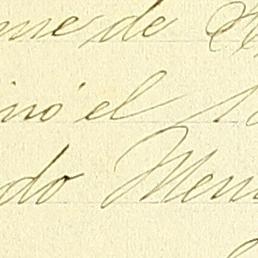 me de
inó el
do Men